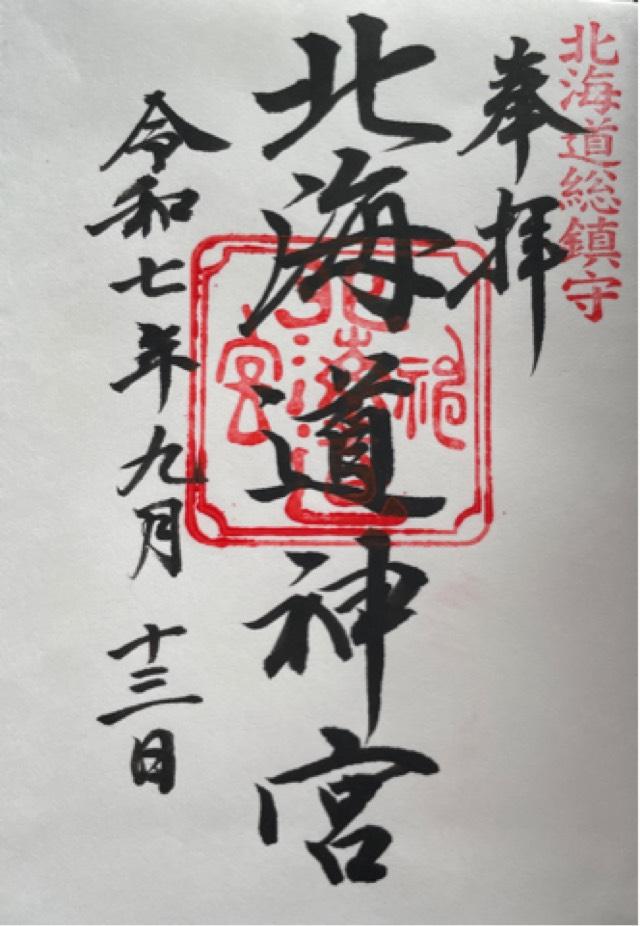 北海道総鎮守
奉拝
北海道神宮
北海道
神
宮
令和七年九月十三日